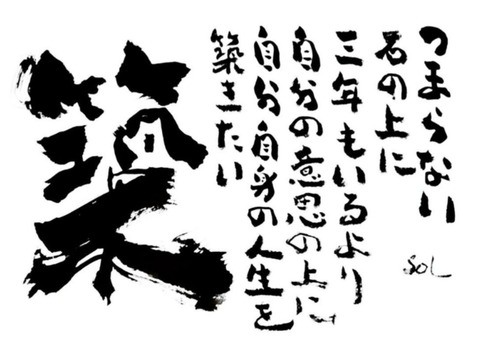 つまらない
石の上に
三年もいるより
自分の意思の上に
自分自身の人生を
築きたい
築
SOL